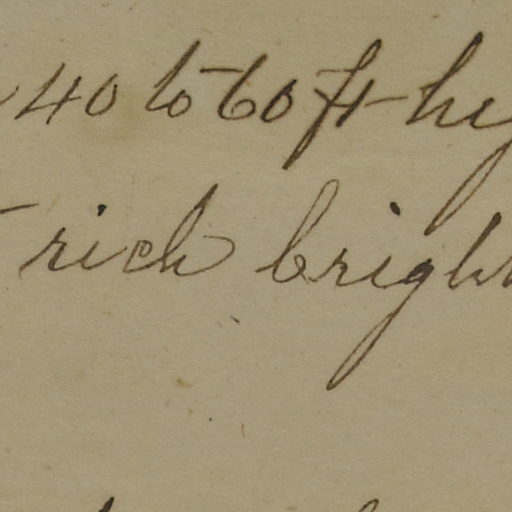 40 to 60 ft hig
rich bright